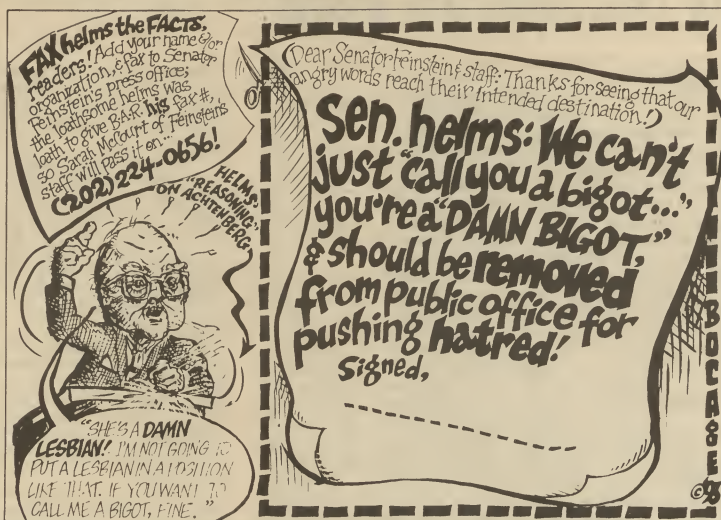 FAX helms the FACTS,
readers! Add your name &/or
organization, & fax to Senator
Feinstein's press office;
the loathsome helms was
loath to give B.A.R. his fax #,
so Sarah McCourt of Feinstein's
staff will pass it on...
(202) 224-0656!
HELMS'
"REASONING"
ON ACHTENBERG
"SHE'S A DAMN
LESBIAN! I'M NOT GOING TO
PUT A LESBIAN IN A POSITION
LIKE THAT. IF YOU WANT TO
CALL ME A BIGOT, FINE."
(Dear Senator Feinstein & staff: Thanks for seeing that our
angry words reach their intended destination!)
Sen. helms: We can't
just "call you a bigot...",
you're a "DAMN BIGOT,"
& should be removed
from public office for
pushing hatred!
Signed,
BOCAGE